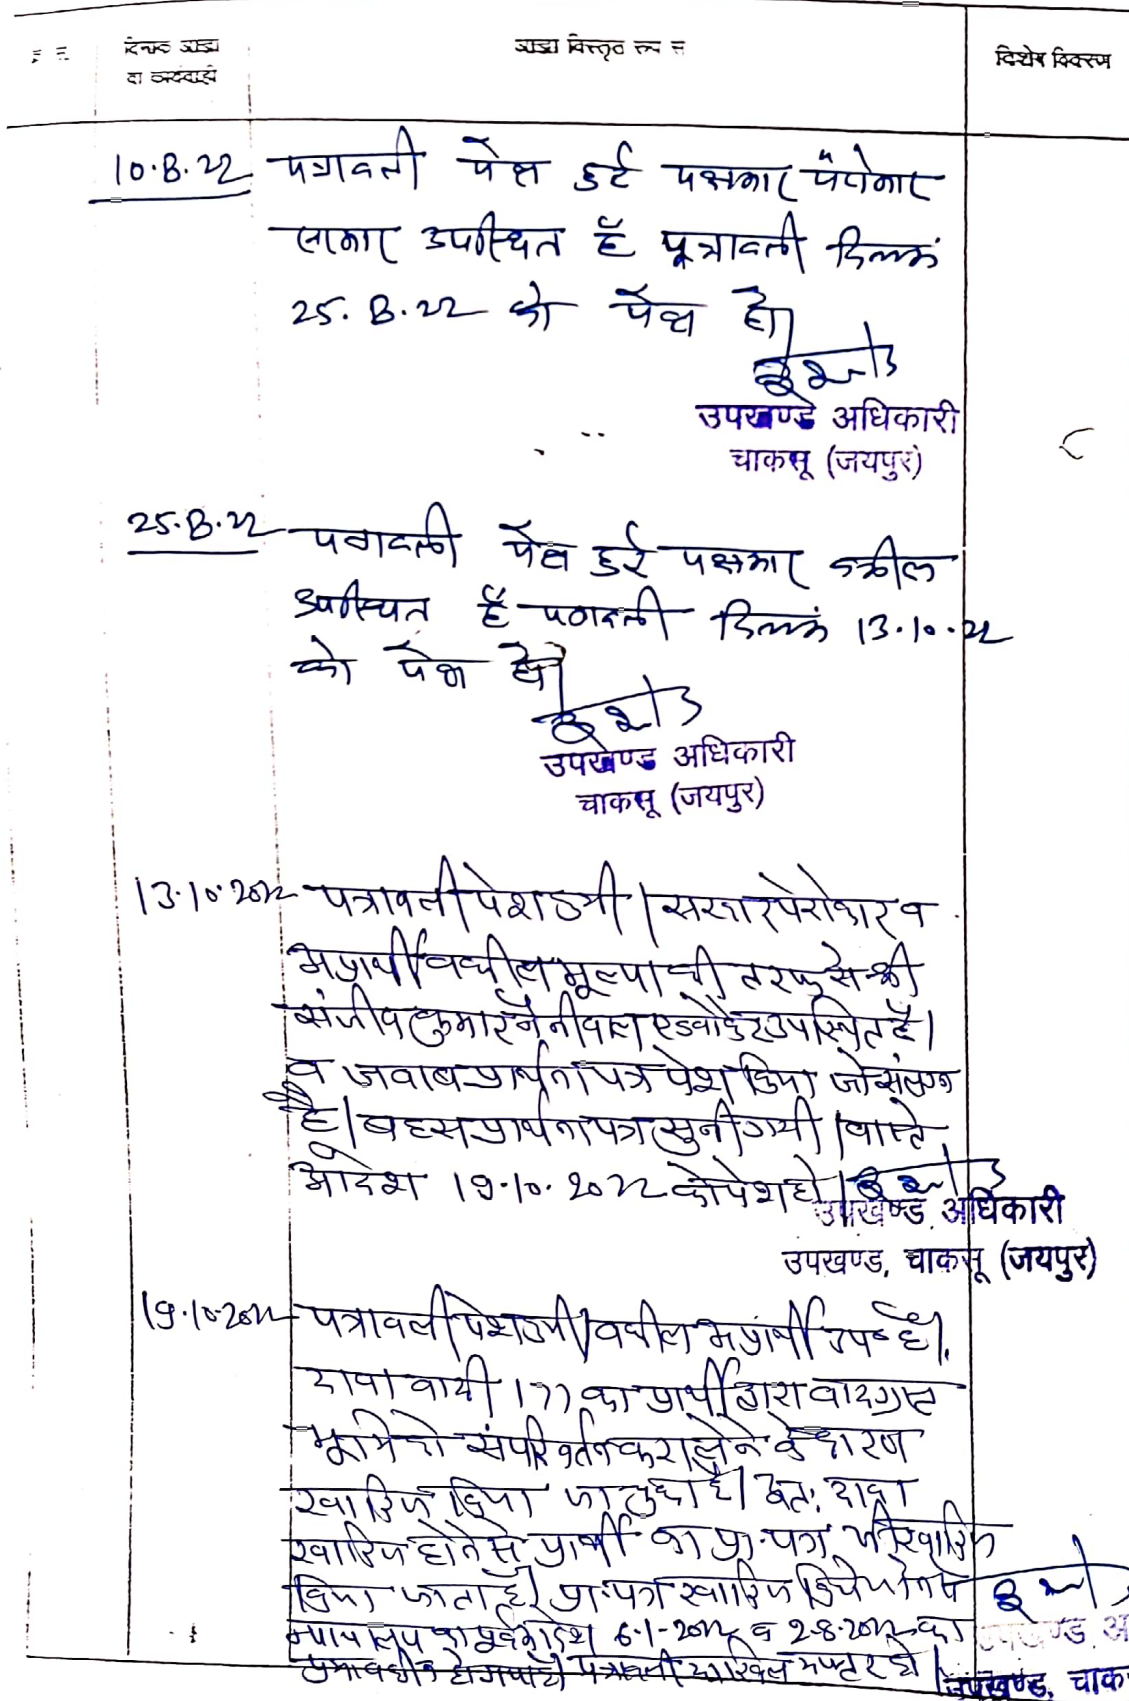 दिनांक आज्ञा
या कार्यवाही
आज्ञा विस्तृत रूप से
विशेष विवरण
10.8.22 पत्रावली पेश हुई पक्षकार पैरोकार
सरकार उपस्थित है पत्रावली दिनांक
25.8.22 को पेश हो।
उपखण्ड अधिकारी
चाकसू (जयपुर)
25.8.22 पत्रावली पेश हुई पक्षकार वकील
उपस्थित है पत्रावली दिनांक 13.10.22
को पेश हो।
उपखण्ड अधिकारी
चाकसू (जयपुर)
13.10.2022 पत्रावली पेश हुयी। सरकार पेरोकार व
अप्रार्थी वकील की तरफ से श्री
संजीव कुमार नैनीवाल एडवोकेट उपस्थित है।
व जवाब प्रार्थना पत्र पेश किया जो संलग्न
है। बहस प्रार्थना पत्र सुनी गयी। वास्ते
आदेश 19.10.2022 को पेश हो।
उपखण्ड अधिकारी
उपखण्ड, चाकसू (जयपुर)
19.10.2022 पत्रावली पेश हुयी। वकील अप्रार्थी उप० है।
दावा वादी 177 का प्रार्थी द्वारा वादग्रस्त
भूमि को संपरिवर्तन करा लेने के कारण
खारिज किया जा चुका है। अतः दावा
खारिज होने से प्रार्थी का प्रा. पत्र भी खारिज
किया जाता है। प्रा. पत्र खारिज किये जाने से
न्यायालय का पूर्व आदेश 6-1-2022 व 2-8-2022 का
प्रभावहीन हो गया है। पत्रावली दाखिल दफ्तर हो।
उपखण्ड अ
उपखण्ड, चाक